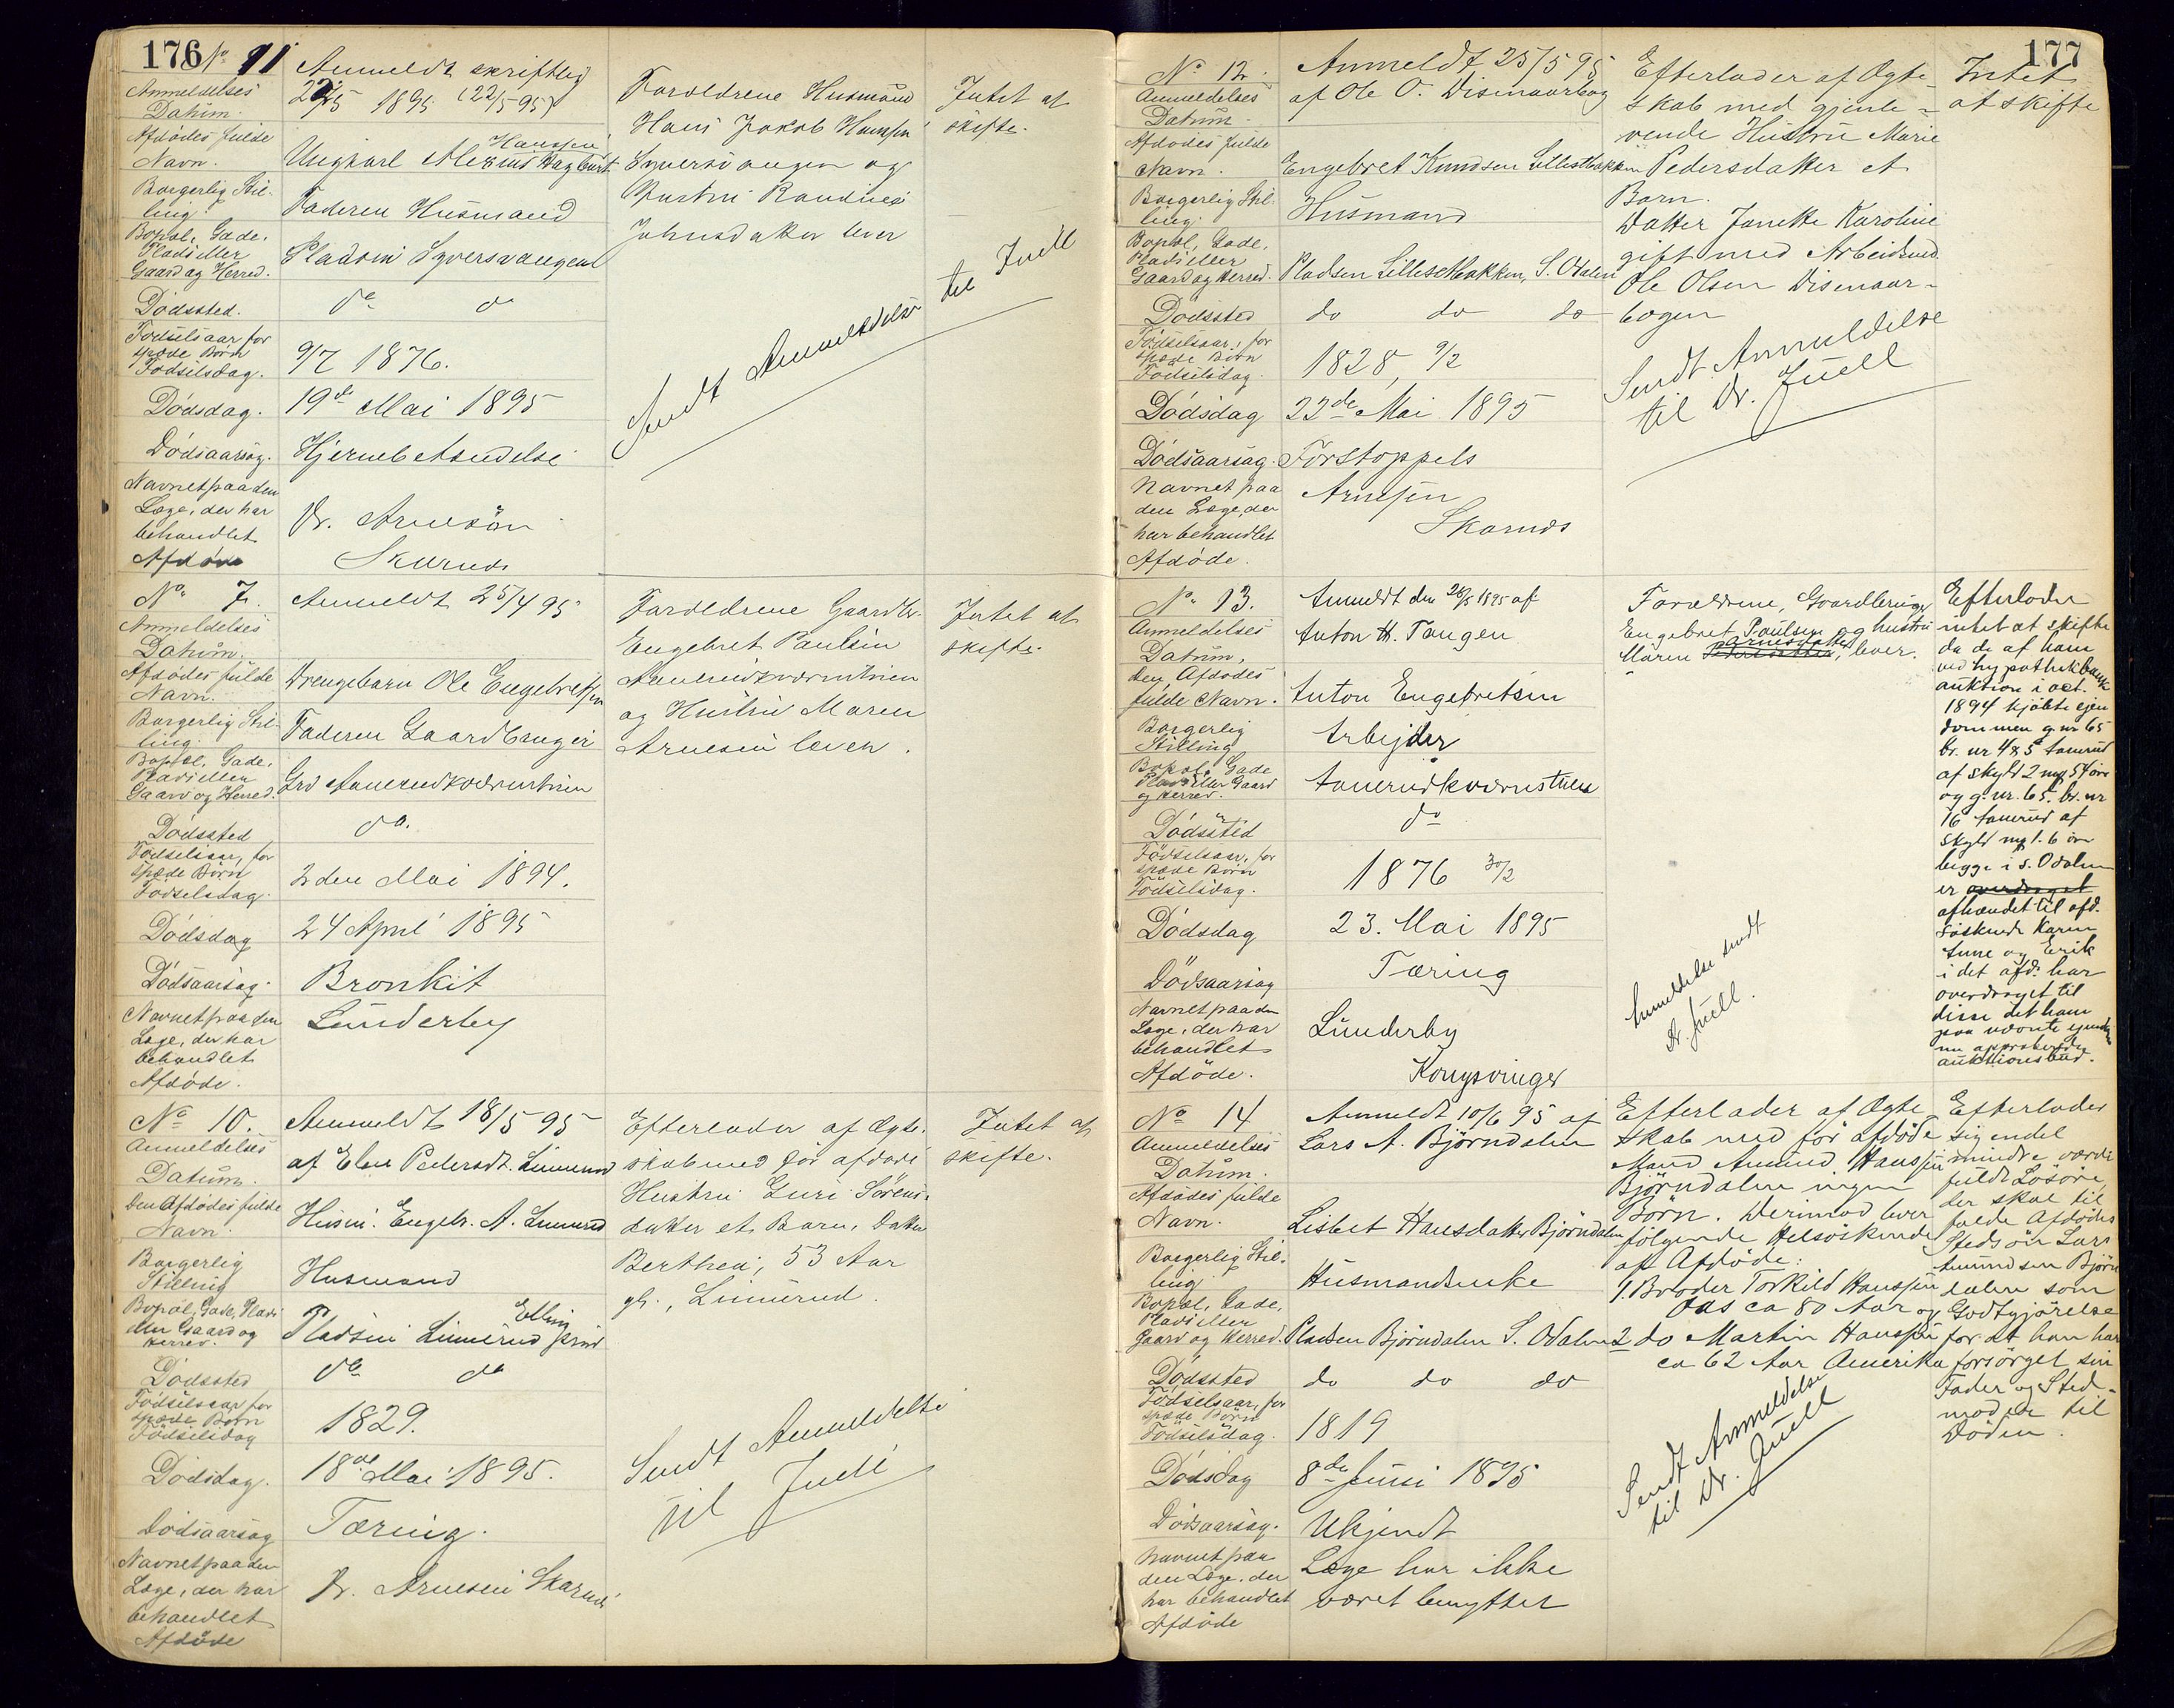 176 No 11
Anmeldelses
Datum.
Anmeldt skriftlig
22/5 1895 (22/5 95)
Afdödes fulde
Navn.
Hanssen
Ungkarl Alexius Hagbart
Borgerlig Stil-
ling.
Faderen Husmand
Bopæl, Gade,
Plads eller
Gaard og Herred.
Pladsen Syversvangen
Dödssted.
do do
Födselsaar for
spæde Börn
Födselsdag.
9/7 1876.
Dödsdag.
19de Mai 1895
Dödsaarsag.
Hjernebetændelse
Navnet paa den
Læge, der har
behandlet
Afdöde
Dr. Arnesön
Skarnes
Forældrene Husmand
Hans Jakob Hanssen
Syversvangen og
Hustru Randine
Johnsdatter lever
Sendt Anmeldelse til Juell
Intet at
skifte.
No 7.
Anmeldelses
Datum.
Anmeldt 25/4 95
Afdödes fulde
Navn.
Drengebarn Ole Engebretsen
Borgerlig Stil-
ling.
Faderen Gaardbruger
Bopæl, Gade,
Plads eller
Gaard og Herred.
Grd Aanerudkværnstuen
Dödssted
do.
Födselsaar, for
spæde Börn
Födselsdag.
2den Mai 1894.
Dödsdag
24 April 1895
Dödsaarsag.
Bronkit
Navnet paa den
Læge, der har
behandlet
Afdöde.
Lunderby
Forældrene Gaardbr.
Engebret Paulsen
Aanerudkværnstuen
og Hustru Maren
Arnesen lever.
Intet at
skifte.
No 10.
Anmeldelses
Datum.
Anmeldt 18/5 95
af Elen Pedersdt. Linnerud
Den Afdödes fulde
Navn.
Husm. Engebr. A. Linnerud
Borgerlig
Stilling
Husmand
Bopæl, Gade, Plads
eller Gaard og
Herred.
Pladsen Linnerud
Dödssted
do do
Födselsaar for
spæde Börn
Födselsdag
1829.
Dödsdag.
18de Mai 1895.
Dödsaarsag
Tæring.
Navnet paa den
Læge, der har
behandlet
Afdöde
Dr. Arnesen Skarnes
Efterlader af Ægte-
skab med för afdöde
Hustru Guri Sörens-
datter et Barn, Datter
Berthea, 53 Aar
gl., Linnerud.
Sendt Anmeldelse
til Juell
Intet at
skifte.
177
No 12.
Anmeldelses
Datum.
Anmeldt 25/5 95
af Ole O. Disenaaebog
Afdödes fulde
Navn.
Engebret Knudsen Lillestbakken
Borgerlig Stil-
ling.
Husmand
Bopæl, Gade,
Plads eller
Gaard og Herred.
Pladsen Lillestbakken, S. Odalen
Dödssted
do do do
Födselsaar, for
spæde Börn
Födselsdag.
1828, 9/2
Dödsdag
22de Mai 1895
Dödsaarsag.
Forstoppels
Navnet paa
den Læge, der
har behandlet
Afdöde.
Arnesen
Skarnes
Efterlader af Ægte-
skab med gjenle-
vende Hustru Marie
Pedersdatter et
Barn.
Datter Janette Karoline
gift med Arbeidsmd.
Ole Olsen Disenaae-
bogen
Sendt Anmeldelse
til Dr. Juell
Intet
at skifte
No 13.
Anmeldelses
Datum,
Anmeldt den 26/5 1895 af
Anton H. Tangen
den Afdödes
fulde Navn.
Anton Engebretsen
Borgerlig
Stilling
Arbejder
Bopæl, Gade
Plads eller Gaard
og Herred.
Aanerudkværnstuen
Dödssted
do
Födselsaar, for
spæde Börn
Födselsdag.
1876 30/2
Dödsdag
23. Mai 1895
Dödsaarsag
Tæring
Navnet paa den
Læge, der har
behandlet
Afdöde.
Lunderby
Kongsvinger
Forældrene, Gaardbruger
Engebret Paulsen og hustru
Maren Arnesdatter, lever.
Anmeldelse sendt
Dr. Juell.
Efterlader
intet at skifte
da de af ham
ved hypothekbank
auktion i oct.
1894 kjöbte ejen
dommen g. nr 65
br. nr 4 & 5 Aanerud
af skyld 2 mg 54 öre
og g. nr. 65. br. nr
16 Aanerud af
skyld mg 1. 6 öre
begge i S. Odalen
er overdraget
afhændet til afd.
söskende Karen
Anne og Erik
i det afd. har
overdraget til
disse det ham
paa nævnte ejendom
auktionsbud.
No 14
Anmeldelses
Datum.
Anmeldt 10/6 95 af
Lars A. Björndalen
Afdödes fulde
Navn.
Lisbet Hansdatter Björndalen
Borgerlig Stil-
ling
Husmandsenke
Bopæl, Gade,
Plads eller
Gaard og Herred.
Pladsen Björndalen S. Odalen
Dödssted
do do do
Födselsaar, for
spæde Börn
Födselsdag.
1819
Dödsdag
8de Juni 1895
Dödsaarsag.
Ukjendt
Navnet paa
den Læge, der
har behandlet
Afdöde
Læge har ikke
været benyttet
Efterlader af Ægte
skab med för afdöde
Mand Amund Hanssen
Björndalen ingen
Börn. Derimod lever
fölgende Helsöskende
af Afdöde:
1. Broder Torkild Hanssen
Oas ca 80 Aar og
2 do Martin Hanssen
ca 62 Aar Amerika
Sendt Anmeldelse
til Dr. Juell
Efterlader
sig endel
mindre værdi
fuldt Lösöre,
der skal til
falde Afdödes
Stedsön Lars
Amundsen Björn
dalen som
Godtgjörelse
for at han har
forsörget sin
Fader og Sted-
moder til
Döden.